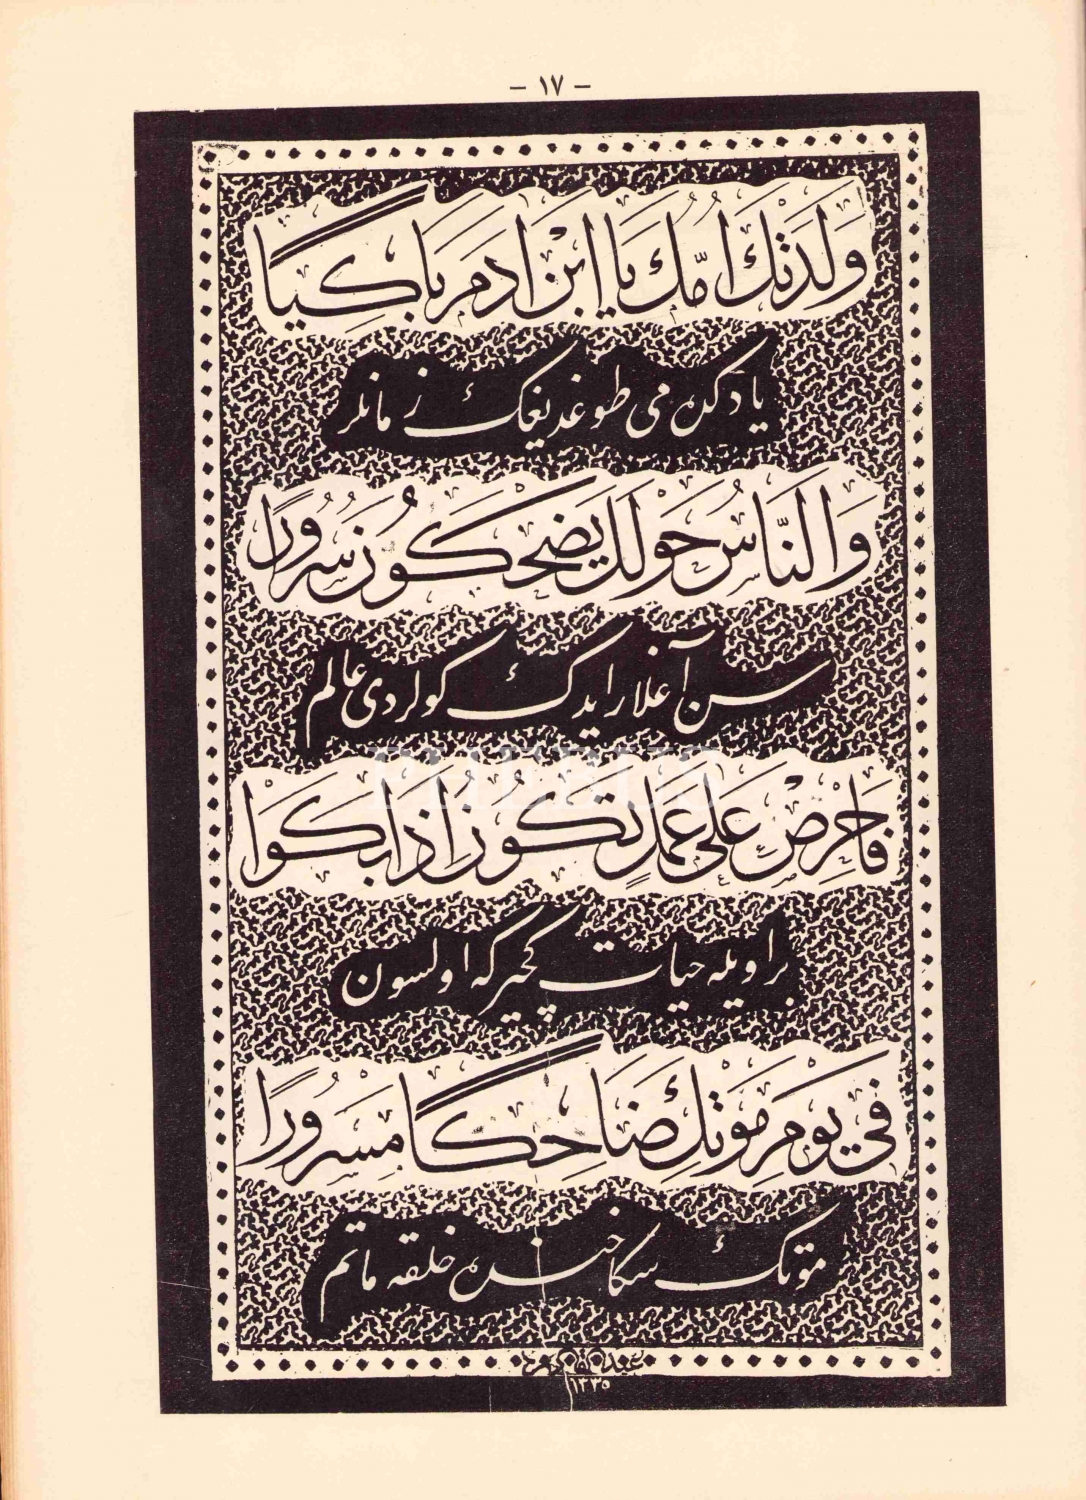 – ١٧ –
ولدتك امّك يا ابن ادم باكيا
ياد كن مى طوغديغك زمانلر
والنّاس حولك يضحكون سرورًا
سن آغلار ايدك كولردى عالم
فاحرص على عمل تكون اذا بكوا
بر اويله حيات كچير كه اولسون
فى يوم موتك ضاحكا مسرورًا
موتك سكا خنده خلقه ماتم
١٣٣٥
PHEBUS